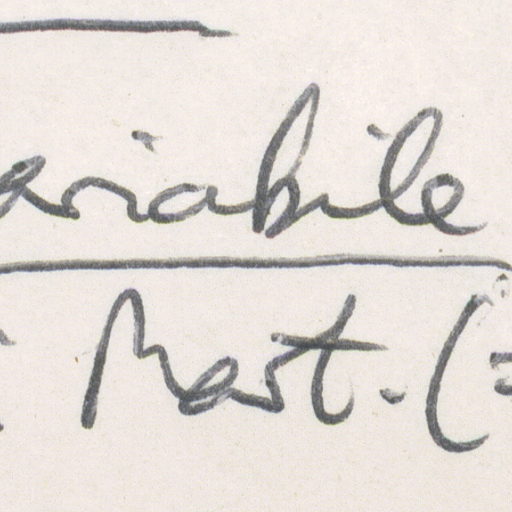 ariabile
Mart. (=